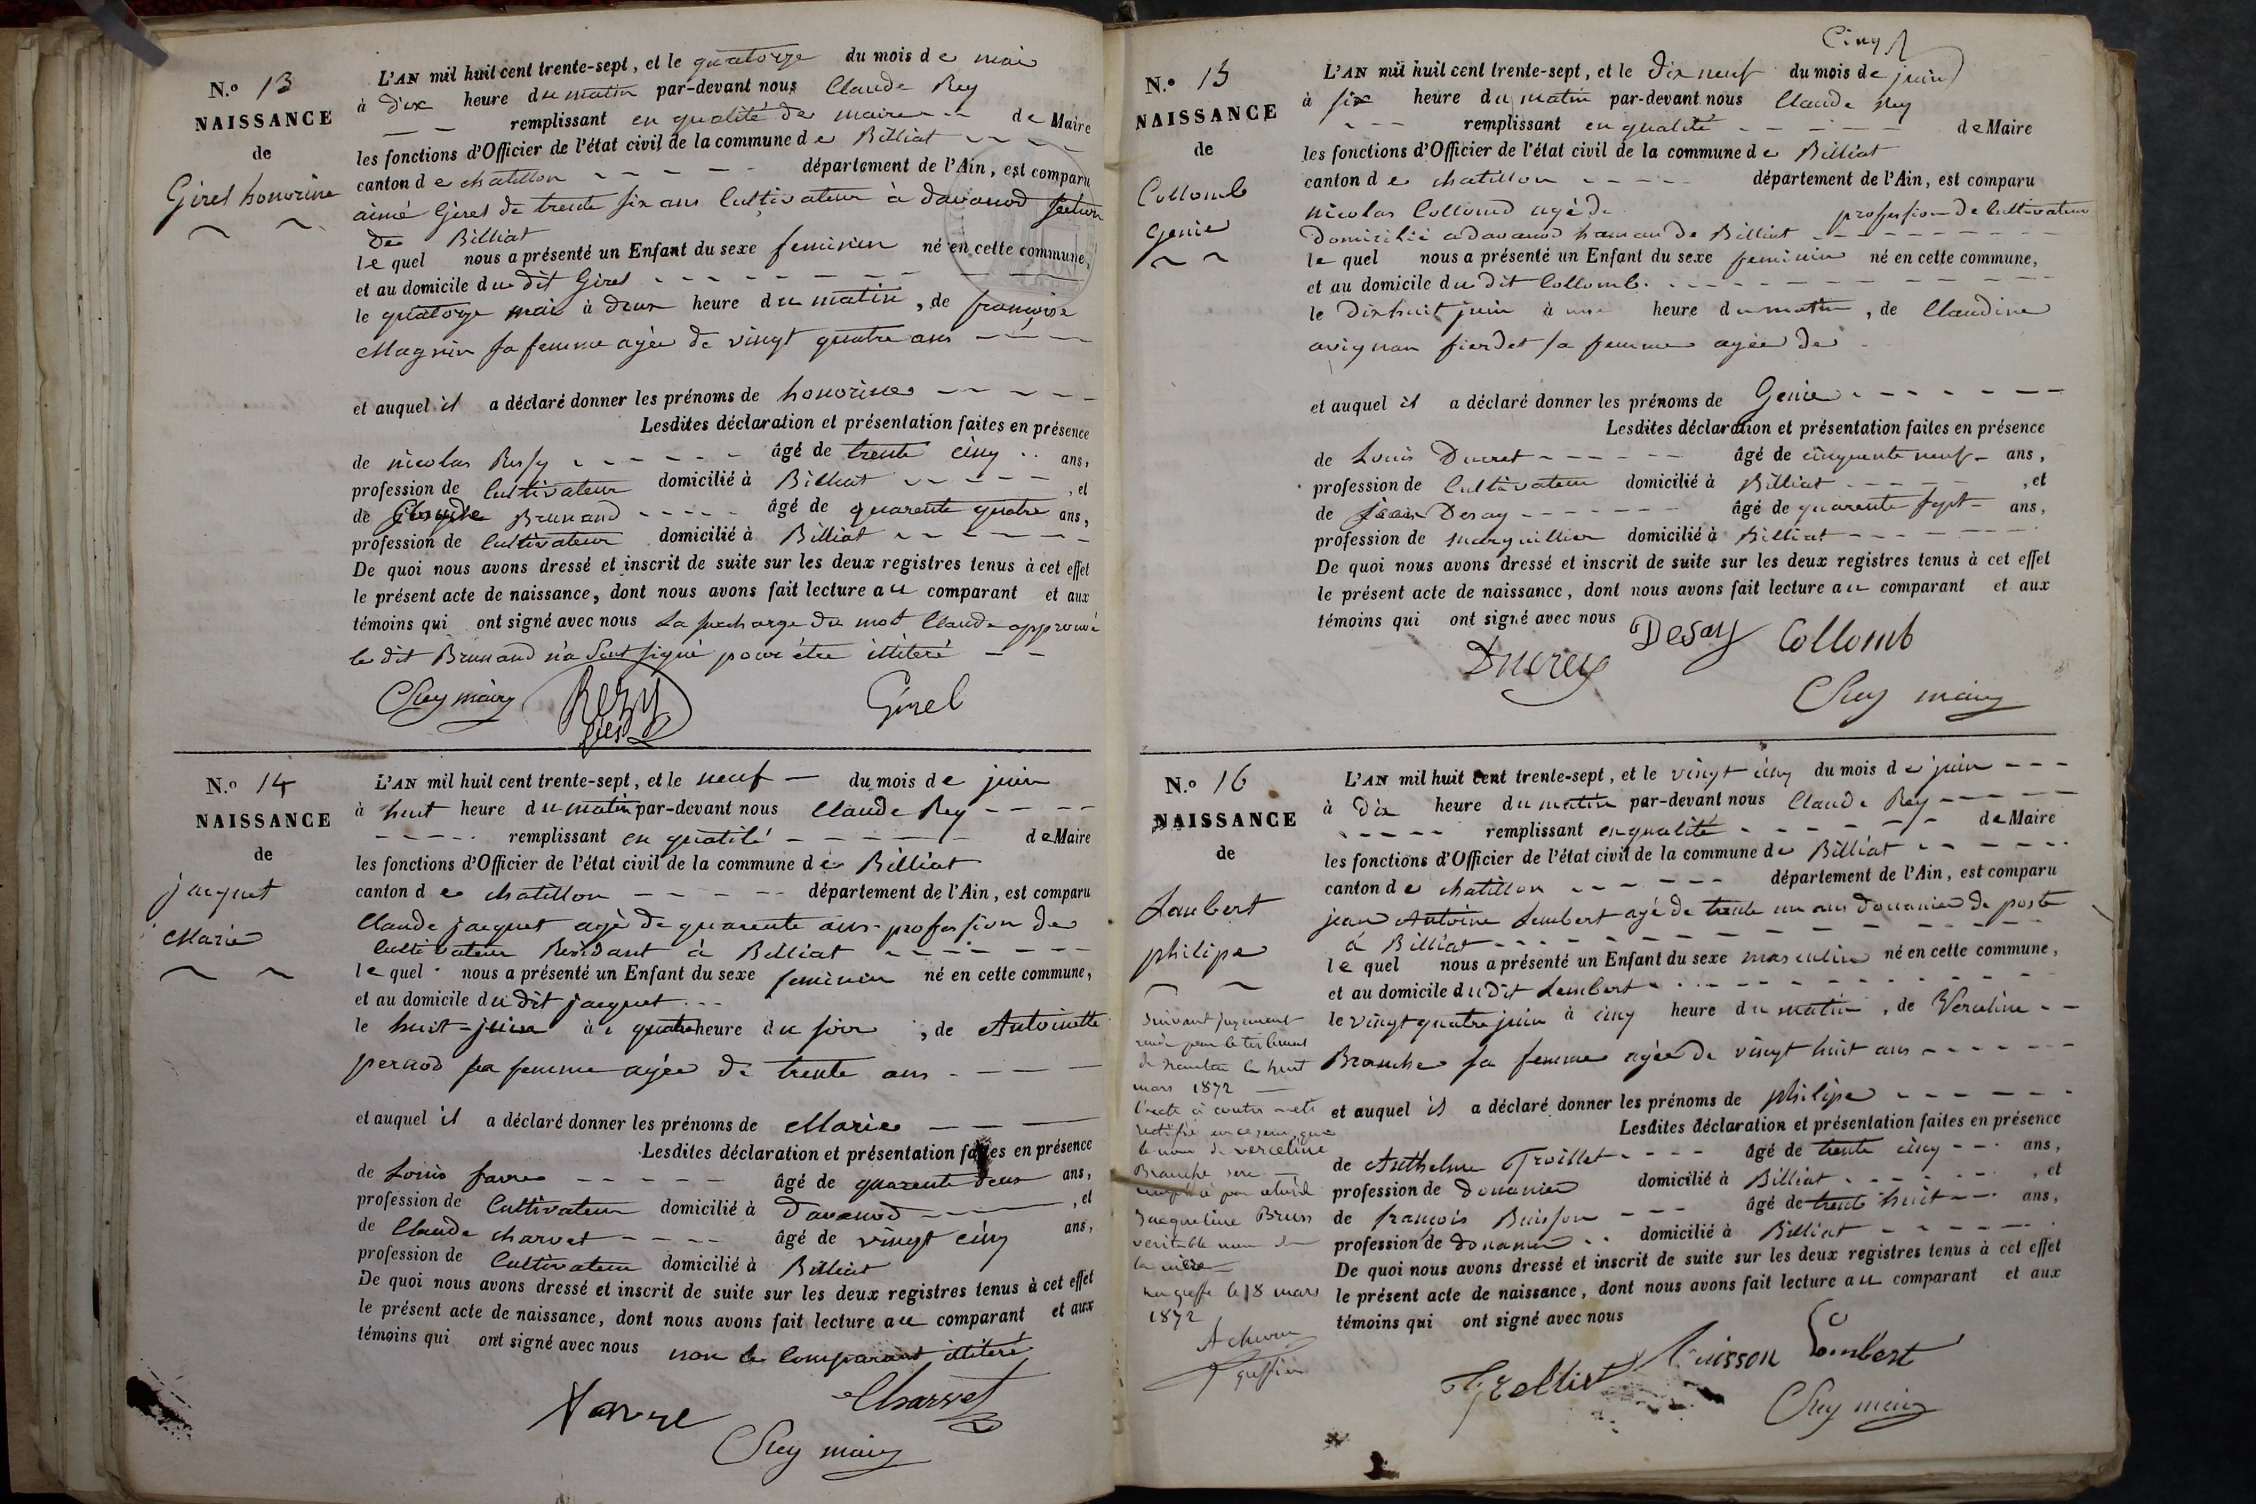 N.º 13
NAISSANCE
de
Girel honorine
L'AN mil huit cent trente-sept, et le quatorze du mois de mai
à dix heure du matin par-devant nous Claude Rey
remplissant en qualité de maire de Maire
les fonctions d'Officier de l'état civil de la commune de Billiat
canton de chatillon département de l'Ain, est comparu
aimé Girel de trente six ans Cultivateur à davanod section
de Billiat
le quel nous a présenté un Enfant du sexe feminien né en cette commune,
et au domicile du dit Girel
le quatorze mai à deux heure du matin, de françoise
Magnin sa femme agée de vingt quatre ans
et auquel il a déclaré donner les prénoms de honorine
Lesdites déclaration et présentation faites en présence
de nicolas Ressy âgé de trente cinq ans,
profession de Cultivateur domicilié à Billiat, et
de Claude Brunand âgé de quarente quatre ans,
profession de Cultivateur domicilié à Billiat
De quoi nous avons dressé et inscrit de suite sur les deux registres tenus à cet effet
le présent acte de naissance, dont nous avons fait lecture au comparant et aux
témoins qui ont signé avec nous La surcharge du mot Claude approuvé
le dit Brunand n'a signé pour être illiteré
CRey maire Girel
N.º 14
NAISSANCE
de
jacquet
Marie
L'AN mil huit cent trente-sept, et le neuf du mois de juin
à huit heure du matin par-devant nous Claude Rey
remplissant en qualité de Maire
les fonctions d'Officier de l'état civil de la commune de Billiat
canton de chatillon département de l'Ain, est comparu
Claude jacquet agé de quarente ans profession de
Cultivateur Residant à Billiat
le quel nous a présenté un Enfant du sexe feminien né en cette commune,
et au domicile du dit jacquet
le huit juin à quatre heure du soir, de Antoinette
pernod sa femme agée de trente ans
et auquel il a déclaré donner les prénoms de Marie
Lesdites déclaration et présentation faites en présence
de Louis favre âgé de quarente deux ans,
profession de Cultivateur domicilié à Davanod, et
de Claude charvet âgé de vingt cinq ans,
profession de Cultivateur domicilié à Billiat
De quoi nous avons dressé et inscrit de suite sur les deux registres tenus à cet effet
le présent acte de naissance, dont nous avons fait lecture au comparant et aux
témoins qui ont signé avec nous non le Comparant illiteré
favre Charvet
CRey maire
Cinq
N.º 15
NAISSANCE
de
Collomb
Genie
L'AN mil huit cent trente-sept, et le dix neuf du mois de juin
à six heure du matin par-devant nous Claude Rey
remplissant en qualité de Maire
les fonctions d'Officier de l'état civil de la commune de Billiat
canton de chatillon département de l'Ain, est comparu
nicolas Collomb agé de profession de Cultivateur
domicilié a davanod hameau de Billiat
le quel nous a présenté un Enfant du sexe feminien né en cette commune,
et au domicile du dit Collomb
le dix huit juin à une heure du matin, de Claudine
avignan fierdet sa femme agée de
et auquel il a déclaré donner les prénoms de Genie
Lesdites déclaration et présentation faites en présence
de Louis Ducret âgé de cinquente neuf ans,
profession de Cultivateur domicilié à Billiat, et
de Desay âgé de quarente sept ans,
profession de marguillier domicilié à Billiat
De quoi nous avons dressé et inscrit de suite sur les deux registres tenus à cet effet
le présent acte de naissance, dont nous avons fait lecture au comparant et aux
témoins qui ont signé avec nous
Desay Collomb
Ducrey
CRey maire
N.º 16
NAISSANCE
de
Lambert
philipe
L'AN mil huit cent trente-sept, et le vingt cinq du mois de juin
à dix heure du matin par-devant nous Claude Rey
remplissant en qualité de Maire
les fonctions d'Officier de l'état civil de la commune de Billiat
canton de chatillon département de l'Ain, est comparu
jean Antoine Lambert agé de trente un ans douanier de poste
à Billiat
le quel nous a présenté un Enfant du sexe masculin né en cette commune,
et au domicile du Dit Lambert
le vingt quatre juin à cinq heure du matin, de Verceline
Branche sa femme agée de vingt huit ans
et auquel il a déclaré donner les prénoms de philipe
Lesdites déclaration et présentation faites en présence
de Anthelme Troillet âgé de trente cinq ans,
profession de douanier domicilié à Billiat, et
de françois Buisson âgé de trente huit ans,
profession de douanier domicilié à Billiat
De quoi nous avons dressé et inscrit de suite sur les deux registres tenus à cet effet
le présent acte de naissance, dont nous avons fait lecture au comparant et aux
témoins qui ont signé avec nous
Buisson Lambert
CRey maire
Suivant jugement
rendu par le tribunal
de Nantua le huit
mars 1872
l'acte ci contre a été
rectifié en ce sens que
le nom de verceline
Branche sera
remplacé par celui de
Jacqueline Bruss
veritable nom de
la mère
au greffe le 18 mars
1872
greffier